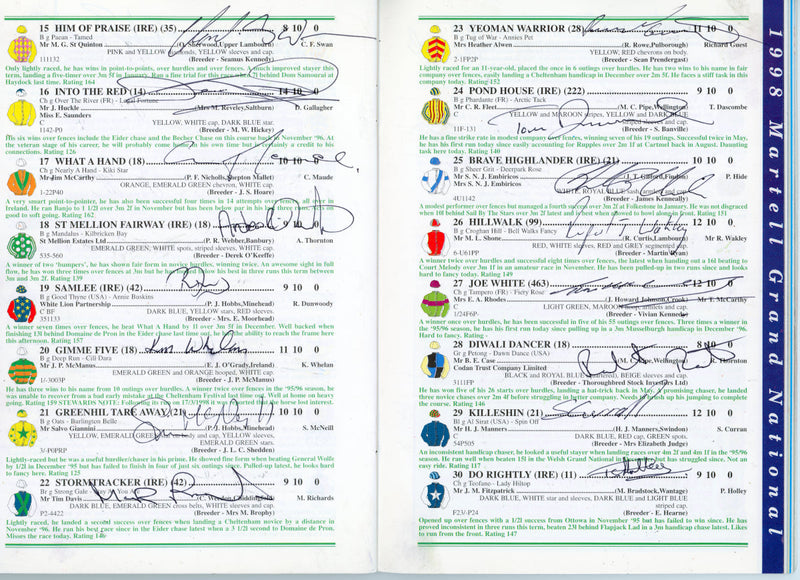 15 HIM OF PRAISE (IRE) (35) 8 10 0
B g Paean - Tamed
Mr M. G. St Quinton (O. Sherwood,Upper Lambourn) C. F. Swan
111132 PINK and YELLOW diamonds, YELLOW sleeves and cap.
(Breeder - Seamus Kennedy)
Only lightly raced, he has wins in point-to-points, over hurdles and over fences. A much improved stayer this
term, landing a five-timer over 3m 5f in January. Ran a fine trial for this race when 7l behind Dom Samourai at
Haydock last time. Rating 164
16 INTO THE RED (14) 14 10 0
Ch g Over The River (FR) - Legal Fortune
Mr J. Huckle (Mrs M. Reveley,Saltburn) D. Gallagher
Miss E. Saunders
C YELLOW, WHITE cap, DARK BLUE star.
1142-P0 (Breeder - M. W. Hickey)
His six wins over fences include the Eider chase and the Becher Chase on this course back in November '96. At
the veteran stage of his career, he will probably come home in his own time but is certainly a credit to his
connections. Rating 126
17 WHAT A HAND (18) 10 10 0
Ch g Nearly A Hand - Kiki Star
Mr Jim McCarthy (P. F. Nicholls,Shepton Mallet) C. Maude
ORANGE, EMERALD GREEN chevron, WHITE cap.
1-22P40 (Breeder - J. S. Hoare)
A very smart point-to-pointer, he has also been successful four times in 14 attempts over fences, all over in
Ireland. He ran Banjo to 1 1/2l over 3m 2f in November but has been below par in his last three runs. Acts on
good to soft going. Rating 162
18 ST MELLION FAIRWAY (IRE) (18) 9 10 0
B g Mandalus - Kilbricken Bay
St Mellion Estates Ltd (P. R. Webber,Banbury) A. Thornton
EMERALD GREEN, WHITE spots, striped sleeves, WHITE cap.
535-560 (Breeder - Derek O'Keeffe)
A winner of two 'bumpers', he has shown fair form in novice hurdles, winning twice. An awesome sight in full
flow, he has won three times over fences at 3m but he has been below his best in three runs this term between
3m and 3m 2f. Rating 139
19 SAMLEE (IRE) (42) 9 10 0
B g Good Thyne (USA) - Annie Boskins
White Lion Partnership (P. J. Hobbs,Minehead) R. Dunwoody
C BF DARK BLUE, YELLOW stars, RED sleeves.
351133 (Breeder - Mrs. E. Moorhead)
A winner seven times over fences, he beat What A Hand by 1l over 3m 5f in December. Well backed when
finishing 13l behind Domaine de Pron in the Eider chase last time out, he has the ability to reach the frame here
this afternoon. Rating 157
20 GIMME FIVE (18) 11 10 0
B g Deep Run - Cill Dara
Mr J. P. McManus (E. J. O'Grady,Ireland) K. Whelan
EMERALD GREEN and ORANGE hooped, WHITE cap.
1/-3003P (Breeder - J. P. McManus)
He has three wins to his name from 10 outings over hurdles. A winner twice over fences in the '95/96 season, he
was unable to recover from a bad early mistake at the Cheltenham Festival last time out. Well at home on heavy
going. Rating 159 STEWARDS NOTE: Following its run on 17/3/1998 it was reported that the gelding made a
21 GREENHIL TARE AWAY (21) 10 10 0
B g Oats - Burlington Belle
Mr Salvo Giannini (P. J. Hobbs,Minehead) S. McNeill
YELLOW, EMERALD GREEN and cap, YELLOW sleeves,
EMERALD GREEN stars.
3/-P0PRP (Breeder - J. L. C. Shedden)
Lightly-raced but he was a useful hurdler/chaser in his prime. He showed fine form when beating General Wolfe
by 1/2l in December '95 but has failed to finish in four of just six outings since. Pulled-up latest, he looks hard
to fancy here. Rating 125
22 STORMTRACKER (IRE) (42) 9 10 0
B g Strong Gale - May As You Are
Mr Tim Davies (C. Weedon,Chiddingfold) M. Richards
DARK BLUE, EMERALD GREEN cross belts, WHITE sleeves and cap.
P2-4422 (Breeder - Mrs M. Brophy)
Lightly raced, he landed a second success over fences when landing a Cheltenham novice by a distance in
November '96. He ran his best race since in the Eider chase latest when a 3 1/2l second to Domaine de Pron.
Misses the race today. Rating 146
23 YEOMAN WARRIOR (28) 11 10 0
B g Tug of War - Annies Pet
Mrs Heather Alwen (R. Rowe,Pulborough) Richard Guest
YELLOW, RED chevrons on body.
2-1FP2P (Breeder - Sean Prendergast)
Lightly raced for an 11-year-old, placed the once in 6 outings over hurdles. He has two wins to his name in fair
company over fences, easily landing a Cheltenham handicap in December over 2m 5f. He faces a stiff task in this
company today. Rating 152
24 POND HOUSE (IRE) (222) 9 10 0
B g Phardante (FR) - Arctic Tack
Mr C. R. Fleet (M. C. Pipe,Wellington) T. Dascombe
C YELLOW and MAROON stripes, YELLOW and DARK BLUE
11F-131 striped cap. (Breeder - S. Banville)
He has a fine strike rate in modest company over fences, winning seven of his 19 outings. Successful twice in May,
he has his first run today since easily accounting for Rupples over 2m 1f at Cartmel back in August. Daunting
task here today. Rating 140
25 BRAVE HIGHLANDER (IRE) (21) 10 10 0
B g Sheer Grit - Deerpark Rose
Mr S. N. J. Embiricos (J. T. Gifford,Findon) P. Hide
Mrs S. N. J. Embiricos
WHITE, ROYAL BLUE sash, armlets and cap.
4U1142 (Breeder - James Kenneally)
A modest performer over fences but managed a fourth success over 2m 2f at Folkestone in January. He was not disgraced
when 10l behind Sail By The Stars over 3m 2f latest and is best when allowed to bowl along in front. Rating 151
26 HILLWALK (99) 12 10 0
B g Croghan Hill - Bell Walks Fancy
Mr M. L. Shone (R. Curtis,Lambourn) Mr R. Wakley
RED, WHITE sleeves, RED and GREY segmented cap.
6-U61PP (Breeder - Martin Ryan)
A winner twice over hurdles and successful eight times over fences, the latest when landing out a 16l beating to
Court Melody over 3m 1f in an amateur race in November. He has been pulled-up in two runs since and looks
hard to fancy today. Rating 149
27 JOE WHITE (463) 12 10 0
Ch g Tampero (FR) - Fiery Rose
Mrs E. A. Rhodes (J. Howard Johnson,Crook) Mr T. McCarthy
LIGHT GREEN, MAROON hoop, armlets and cap.
1/24F6P- (Breeder - Vivian Kennedy)
A winner once over hurdles, he has been successful in five of his 55 outings over fences. Three times a winner in
the '95/96 season, he has his first run today since pulling up in a 3m Musselburgh handicap in December '96.
Hard to fancy. Rating 145
28 DIWALI DANCER (18) 8 10 0
Gr g Petong - Dawn Dance (USA)
Mr B. E. Case (M. C. Pipe,Wellington) R. Thornton
Codan Trust Company Limited
BLACK and ROYAL BLUE quartered, BEIGE sleeves and cap.
3111FP (Breeder - Thoroughbred Stock Investors Ltd)
He has won five of his 26 starts over hurdles, landing a hat-trick back in May. A promising chaser, he landed
three novice chases over 2m 4f before struggling in better company. Needs to brush up his jumping to complete
the course. Rating 146
29 KILLESHIN (21) 12 10 0
B g Al Sirat (USA) - Spin Off
Mr H. J. Manners (H. J. Manners,Swindon) S. Curran
C DARK BLUE, RED cap, GREEN spots.
54P505 (Breeder - Mrs Elizabeth Judge)
An inconsistent handicap chaser, he looked a useful stayer when landing races over 4m 2f and 4m 1f in the '95/96
season. He ran well when beaten 15l in the Welsh Grand National in December but has struggled since. Not an
easy ride. Rating 117
30 DO RIGHTLY (IRE) (11) 9 10 0
Ch g Teofane - Lady Hiltop
Mr J. M. Fitzpatrick (M. Bradstock,Wantage) P. Holley
DARK BLUE, WHITE star and sleeves, DARK BLUE and LIGHT BLUE
striped cap.
F23/-P24 (Breeder - E. Hearne)
Opened up over fences with a 1/2l success from Ottawa in November '95 but has failed to win since. He has
proved inconsistent in three runs this term, beaten 23l behind Flapjack Lad in a 3m handicap chase latest. Likes
to run from the front. Rating 147
1998 Martell Grand National